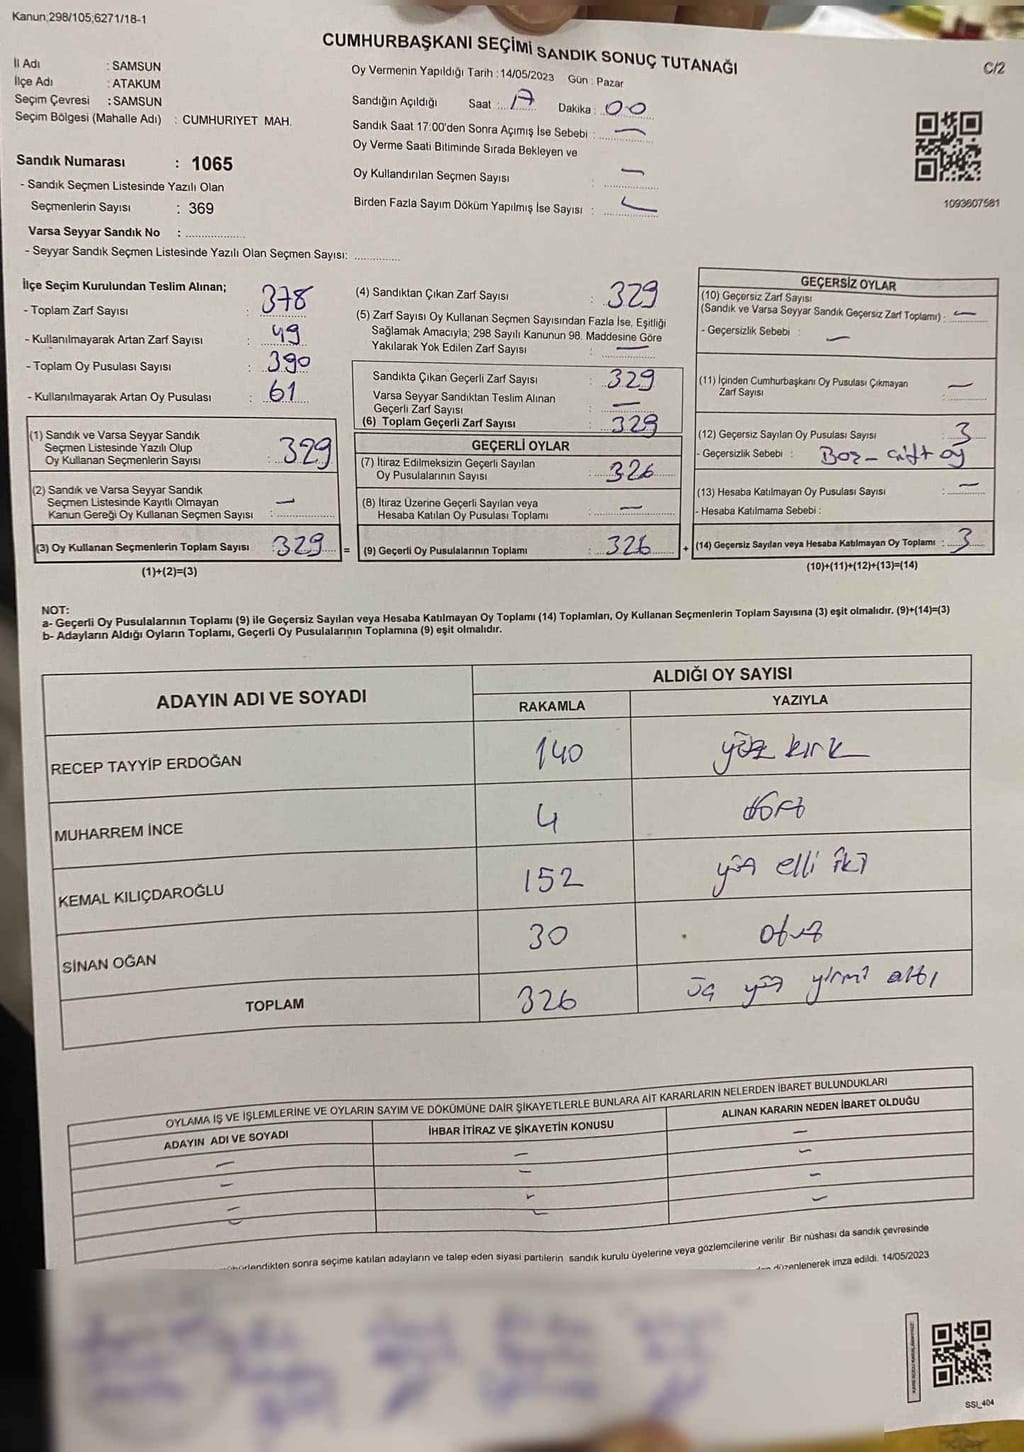 Kanun;298/105;6271/18-1
CUMHURBAŞKANI SEÇİMİ SANDIK SONUÇ TUTANAĞI
C/2
İl Adı : SAMSUN
İlçe Adı : ATAKUM
Seçim Çevresi : SAMSUN
Seçim Bölgesi (Mahalle Adı) : CUMHURIYET MAH.
Oy Vermenin Yapıldığı Tarih : 14/05/2023 Gün : Pazar
Sandığın Açıldığı Saat : Dakika : 00
Sandık Saat 17:00'den Sonra Açımış İse Sebebi : —
Oy Verme Saati Bitiminde Sırada Bekleyen ve
Oy Kullandırılan Seçmen Sayısı : —
Birden Fazla Sayım Döküm Yapılmış İse Sayısı : —
1093607581
Sandık Numarası : 1065
- Sandık Seçmen Listesinde Yazılı Olan
Seçmenlerin Sayısı : 369
Varsa Seyyar Sandık No : ..................
- Seyyar Sandık Seçmen Listesinde Yazılı Olan Seçmen Sayısı: ..............
İlçe Seçim Kurulundan Teslim Alınan;
- Toplam Zarf Sayısı : 378
- Kullanılmayarak Artan Zarf Sayısı : 49
- Toplam Oy Pusulası Sayısı : 390
- Kullanılmayarak Artan Oy Pusulası : 61
(1) Sandık ve Varsa Seyyar Sandık
Seçmen Listesinde Yazılı Olup
Oy Kullanan Seçmenlerin Sayısı : 329
(2) Sandık ve Varsa Seyyar Sandık
Seçmen Listesinde Kayıtlı Olmayan
Kanun Gereği Oy Kullanan Seçmen Sayısı : —
(3) Oy Kullanan Seçmenlerin Toplam Sayısı : 329 =
(1)+(2)=(3)
(4) Sandıktan Çıkan Zarf Sayısı : 329
(5) Zarf Sayısı Oy Kullanan Seçmen Sayısından Fazla İse, Eşitliği
Sağlamak Amacıyla; 298 Sayılı Kanunun 98. Maddesine Göre
Yakılarak Yok Edilen Zarf Sayısı : —
Sandıkta Çıkan Geçerli Zarf Sayısı : 329
Varsa Seyyar Sandıktan Teslim Alınan
Geçerli Zarf Sayısı : —
(6) Toplam Geçerli Zarf Sayısı : 329
GEÇERLİ OYLAR
(7) İtiraz Edilmeksizin Geçerli Sayılan
Oy Pusulasının Sayısı : 326
(8) İtiraz Üzerine Geçerli Sayılan veya
Hesaba Katılan Oy Pusulası Toplamı : —
(9) Geçerli Oy Pusulalarının Toplamı : 326 +
GEÇERSİZ OYLAR
(10) Geçersiz Zarf Sayısı
(Sandık ve Varsa Seyyar Sandık Geçersiz Zarf Toplamı) : —
- Geçersizlik Sebebi : —
(11) İçinden Cumhurbaşkanı Oy Pusulası Çıkmayan
Zarf Sayısı : —
(12) Geçersiz Sayılan Oy Pusulası Sayısı : 3
- Geçersizlik Sebebi : Boş - Çift oy
(13) Hesaba Katılmayan Oy Pusulası Sayısı : —
- Hesaba Katılmama Sebebi :
(14) Geçersiz Sayılan veya Hesaba Katılmayan Oy Toplamı : 3
(10)+(11)+(12)+(13)=(14)
NOT:
a- Geçerli Oy Pusulalarının Toplamı (9) ile Geçersiz Sayılan veya Hesaba Katılmayan Oy Toplamı (14) Toplamları, Oy Kullanan Seçmenlerin Toplam Sayısına (3) eşit olmalıdır. (9)+(14)=(3)
b- Adayların Aldığı Oyların Toplamı, Geçerli Oy Pusulalarının Toplamına (9) eşit olmalıdır.
ADAYIN ADI VE SOYADI
ALDIĞI OY SAYISI
RAKAMLA YAZIYLA
RECEP TAYYİP ERDOĞAN 140 yüz kırk
MUHARREM İNCE 4 dört
KEMAL KILIÇDAROĞLU 152 yüz elli iki
SİNAN OĞAN 30 otuz
TOPLAM 326 üç yüz yirmi altı
OYLAMA İŞ VE İŞLEMLERİNE VE OYLARIN SAYIM VE DÖKÜMÜNE DAİR ŞİKAYETLERLE BUNLARA AİT KARARLARIN NELERDEN İBARET BULUNDUKLARI
ADAYIN ADI VE SOYADI İHBAR İTİRAZ VE ŞİKAYETİN KONUSU ALINAN KARARIN NEDEN İBARET OLDUĞU
— — —
— — —
— — —
— — —
sonra seçime katılan adayların ve talep eden siyasi partilerin sandık kurulu üyelerine veya gözlemcilerine verilir. Bir nüshası da sandık çevresinde
düzenlenerek imza edildi. 14/05/2023
SSI_404